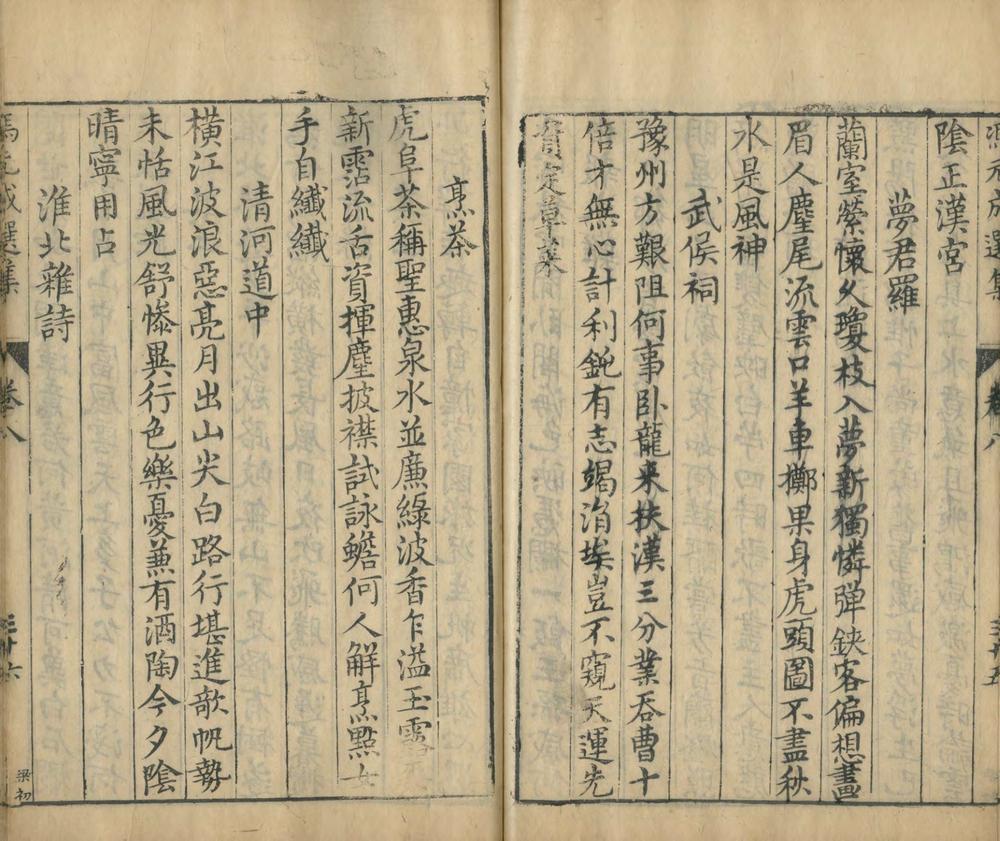 陰正漢宮
夢君羅
蘭室縈懷久瓊枝入夢新獨憐彈鋏客偏想畫
眉人麈尾流雲口羊車擲果身虎頭圖不盡秋
水是風神
武侯祠
豫州方艱阻何事卧龍来扶漢三分業吞曹十
倍才無心計利鈍有志竭涓埃豈不窺天運先
定草萊
烹茶
虎阜茶稱聖惠泉水並廉綠波香乍溢玉露
新霑流舌資揮麈披襟試詠蟾何人解烹㸃女
手自纖纖
清河道中
橫江波浪惡亮月出山尖白路行堪進欹帆勢
未恬風光舒慘異行色樂憂兼有酒陶今夕陰
晴寧用占
淮北雜詩
選集
卷八
三十六
梁初